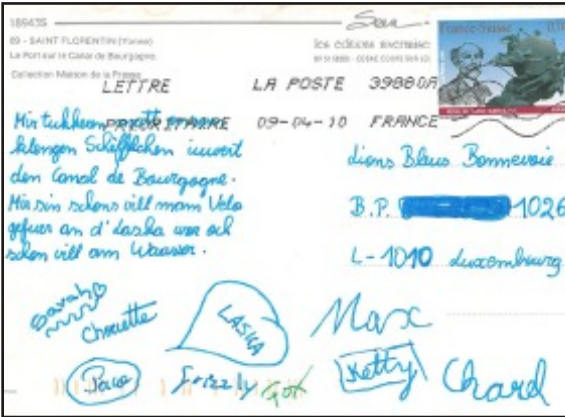 189435
89 - SAINT FLORENTIN (Yonne)
Le Port sur le Canal de Bourgogne.
Collection Maison de la Presse
France-Suisse
LETTRE LA POSTE 39880A
PRIORITAIRE 09-04-10 FRANCE
Mir tukkeren
klengen Schiffelchen iwwert
den Canal de Bourgogne.
Mir sin schons vill mam Velo
gefuer an d'Laska war och
schon vill am Waasser.
Lions Bleus Bonnevoie
B.P. 1026
L-1010 Luxembourg
Sarah
Chouette
LASKA
Max
Paco
Grizzly
Ketty
Chard